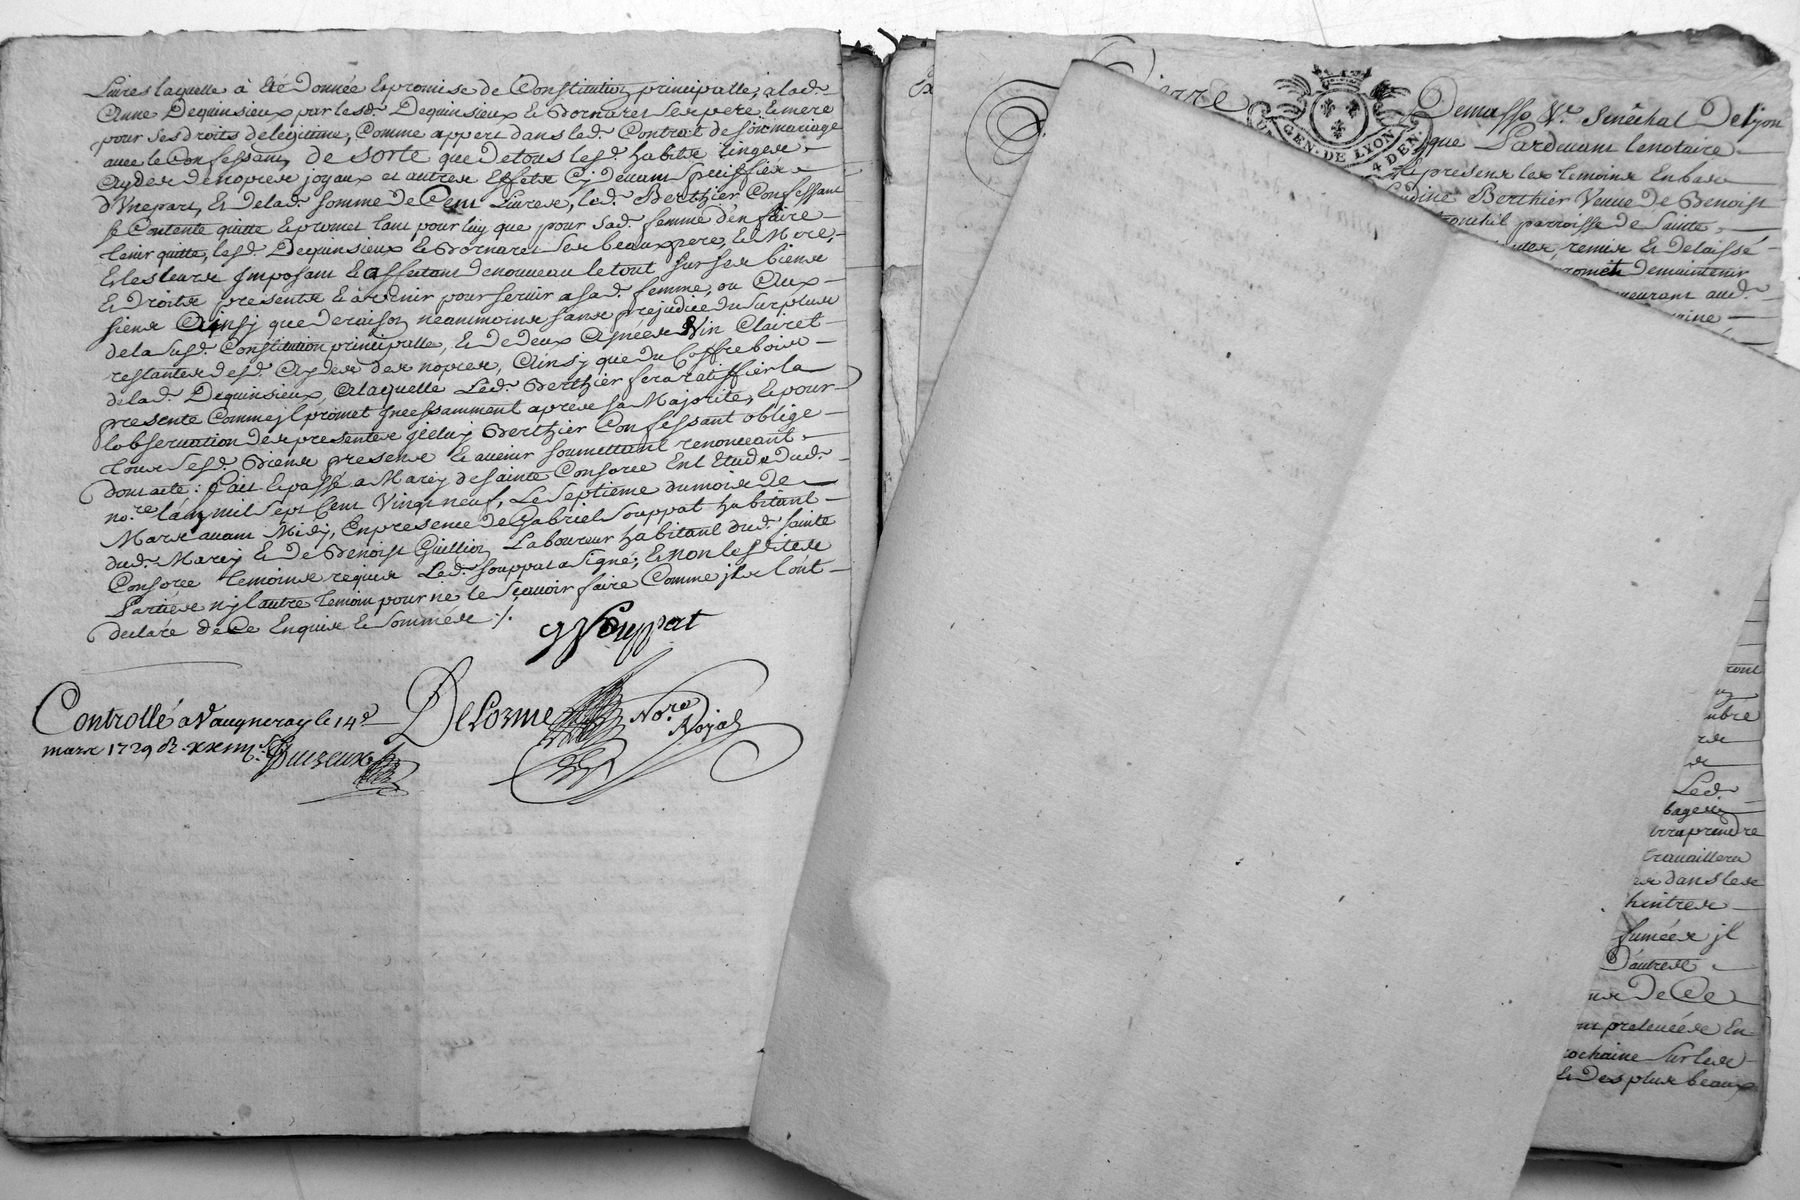 Livres laquelle à été Donnée Epromise de Constitution principalle, a lad.
Anne Dequinsieux par lesd. Dequinsieux & Bornaret ses pere & mere
pour ses droits de legitime, Comme appert dans led. Contrat de son mariage
avec le Confessant, de sorte que de tous lesd. habits linges
Aydes de nopces joyaux et autres Effets Cy devant speciffiés
d'Une part, & de lad. somme de Cent Livres, led. Berthier Confessant
se Contente quitte & promet tant pour luy que pour sad. femme d'en faire
tenir quitte, lesd. Dequinsieux & Bornaret ses beaux pere, & Mere,
& les leurs Jmposant & affectant de nouveau le tout sur ses biens
& Droits presents & à venir pour servir a sad. femme, ou Aux
siens Ainsy que de raison neanmoins sans prejudice du surplus
de la susd. Constitution principalle, & de deux Asnées Vin Clairet
restantes desd. Aydes des nopces, Ainsy que du Coffre bois
de lad. Dequinsieux, A laquelle Led. Berthier fera ratiffier la
presente Comme jl promet Jncessamment apres sa Majorité, & pour
lobservation des presentes jceluy Berthier Confessant oblige
tous sesd. Biens presens & avenir soumettant renonceant
dont acte: fait & passé a Marcy de sainte Consorce En l Etude dud.
no.re l'an mil sept Cent Vingt neuf, Le septieme du mois de
Mars avant Midy, En presence de Gabriel Souppat habitant
dud. Marcy & De Benoist Guillion Laboureur habitant dud. sainte
Consorce temoins requis Led. souppat a signé, & non lesdites
Parties ny l autre temoin pour ne le sçavoir faire Comme jls l'ont
declaré de Ce Enquis & sommés ./.
g Souppat
Controllé a Vaugneray le 14e
mars 1729
DeLorme No.re Royal
Pierre
GEN. DE LYON
4 DEN.
Demasso Sr. Senêchal De Lyon
que Pardevant le notaire
presens les temoins En bas
Berthier Veuve De Benoist
parroisse de Sainte
remis & Delaissé
promet de maintenir
demeurant aud.
Led.
prendre
travaillera
dans les
fumées jl
D'autres
De Ce
prelevées En
prochaine sur les
& Des plus beaux